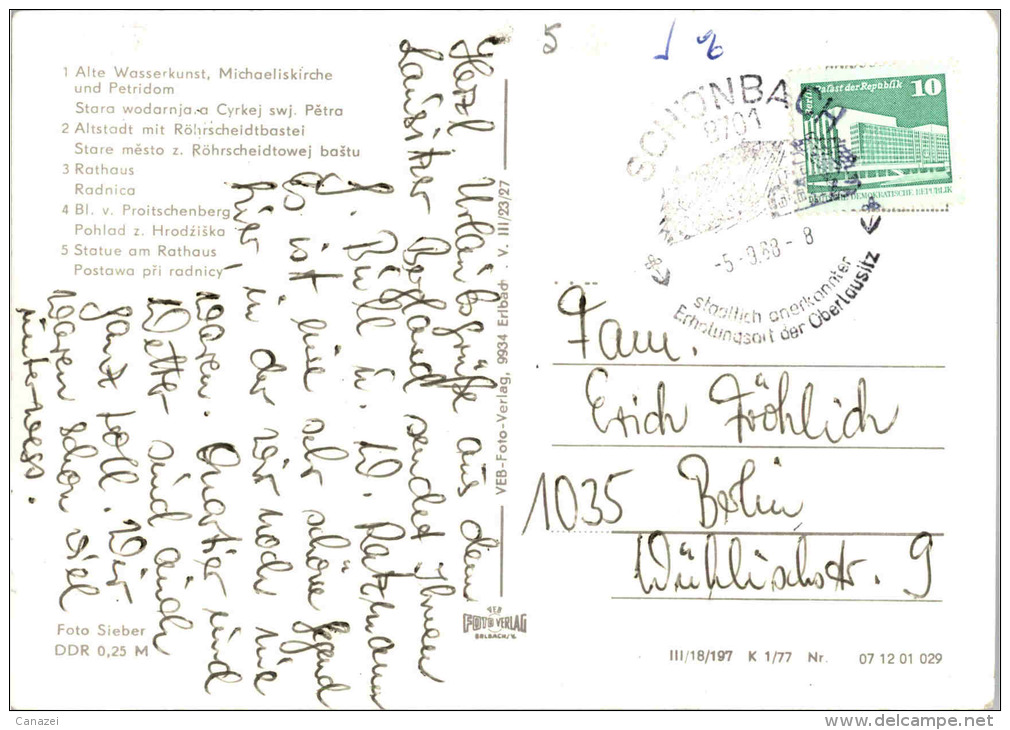 1 Alte Wasserkunst, Michaeliskirche
und Petridom
Stara wodarnja a Cyrkej swj. Pětra
2 Altstadt mit Röhrscheidtbastei
Stare město z. Röhrscheidtowej baštu
3 Rathaus
Radnica
4 Bl. v. Proitschenberg
Pohlad z. Hrodźiška
5 Statue am Rathaus
Postawa při radnicy
Herzl. Urlaubsgrüße aus dem
Lausitzer Bergland sendet Ihnen
J. Püll u. W. Rathmann
Es ist eine sehr schöne Gegend
hier, in der wir noch nie
waren. Quartier und
Wetter sind auch
ganz toll. Wir
waren schon viel
unterwegs.
Foto Sieber
DDR 0,25 M
VEB-Foto-Verlag, 9934 Erlbach V. III/23/27
VEB
FOTO VERLAG
ERLBACH/V.
5
SCHÖNBACH
8701
-5.-9.88-8
staatlich anerkannter
Erholungsort der Oberlausitz
Berlin, Palast der Republik
10
DEMOKRATISCHE REPUBLIK
Fam.
Erich Fröhlich
1035 Berlin
Wühlischstr. 9
III/18/197 K 1/77 Nr. 07 12 01 029
Canazei
www.delcampe.net